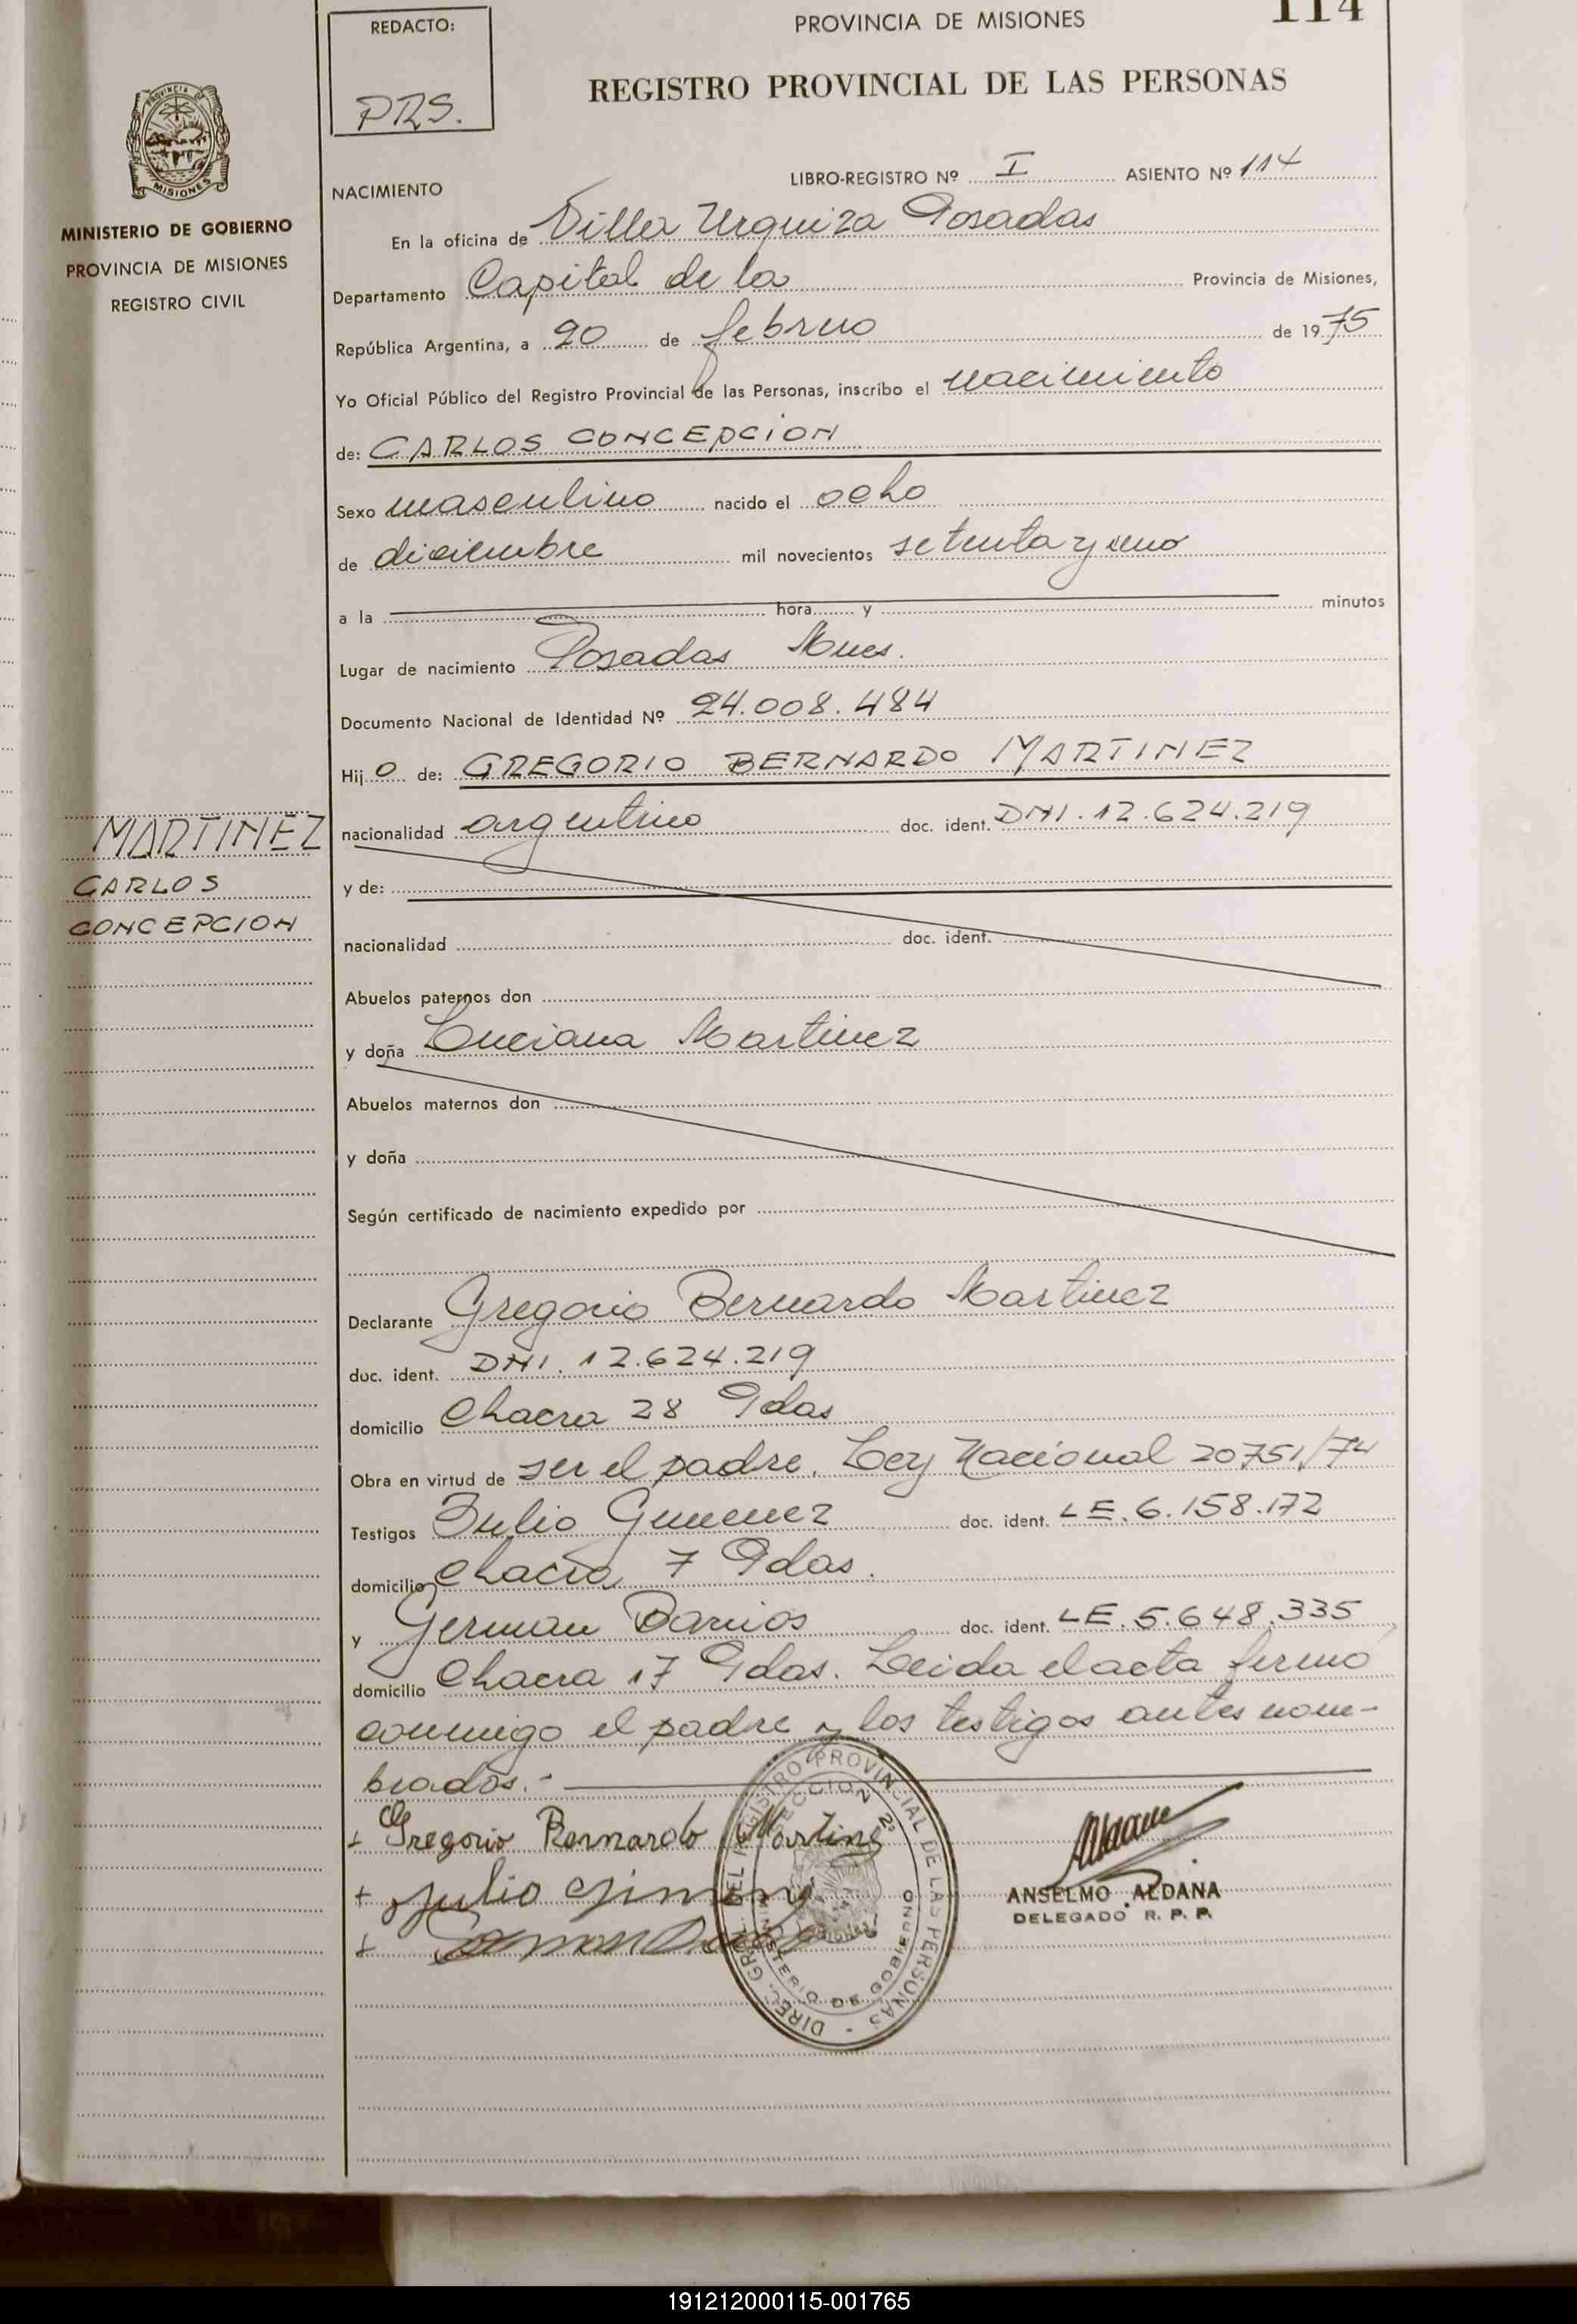 REDACTO:
PRS.
PROVINCIA DE MISIONES
114
REGISTRO PROVINCIAL DE LAS PERSONAS
PROVINCIA DE MISIONES
MINISTERIO DE GOBIERNO
PROVINCIA DE MISIONES
REGISTRO CIVIL
NACIMIENTO
LIBRO-REGISTRO Nº I ASIENTO Nº 114
En la oficina de Villa Urquiza Posadas
Departamento Capital de la Provincia de Misiones,
República Argentina, a 20 de febrero de 1975
Yo Oficial Público del Registro Provincial de las Personas, inscribo el nacimiento
de: CARLOS CONCEPCION
Sexo masculino nacido el ocho
de diciembre mil novecientos setenta y uno
a la hora y minutos
Lugar de nacimiento Posadas Mnes.
Documento Nacional de Identidad Nº 24.008.484
Hijo de: GREGORIO BERNARDO MARTINEZ
MARTINEZ
CARLOS
CONCEPCION
nacionalidad argentino doc. ident. DNI. 12.624.219
y de:
nacionalidad doc. ident.
Abuelos paternos don
y doña Luciana Martinez
Abuelos maternos don
y doña
Según certificado de nacimiento expedido por
Declarante Gregorio Bernardo Martinez
doc. ident. DNI. 12.624.219
domicilio Chacra 28 Pdas
Obra en virtud de ser el padre. Ley Nacional 20751/74
Testigos Julio Gimenez doc. ident. LE. 6.158.172
domicilio Chacra 7 Pdas.
y German Barrios doc. ident. LE. 5.648.335
domicilio Chacra 17 Pdas. Leida el acta firmó
conmigo el padre y los testigos antes nom-
brados.-
+ Gregorio Bernardo Martinez
+ Julio Gimenez
+
DIREC. GRAL. DEL REGISTRO PROVINCIAL DE LAS PERSONAS
SECCION 2ª
MINISTERIO DE GOBIERNO
ANSELMO ALDANA
DELEGADO R. P. P.
191212000115-001765